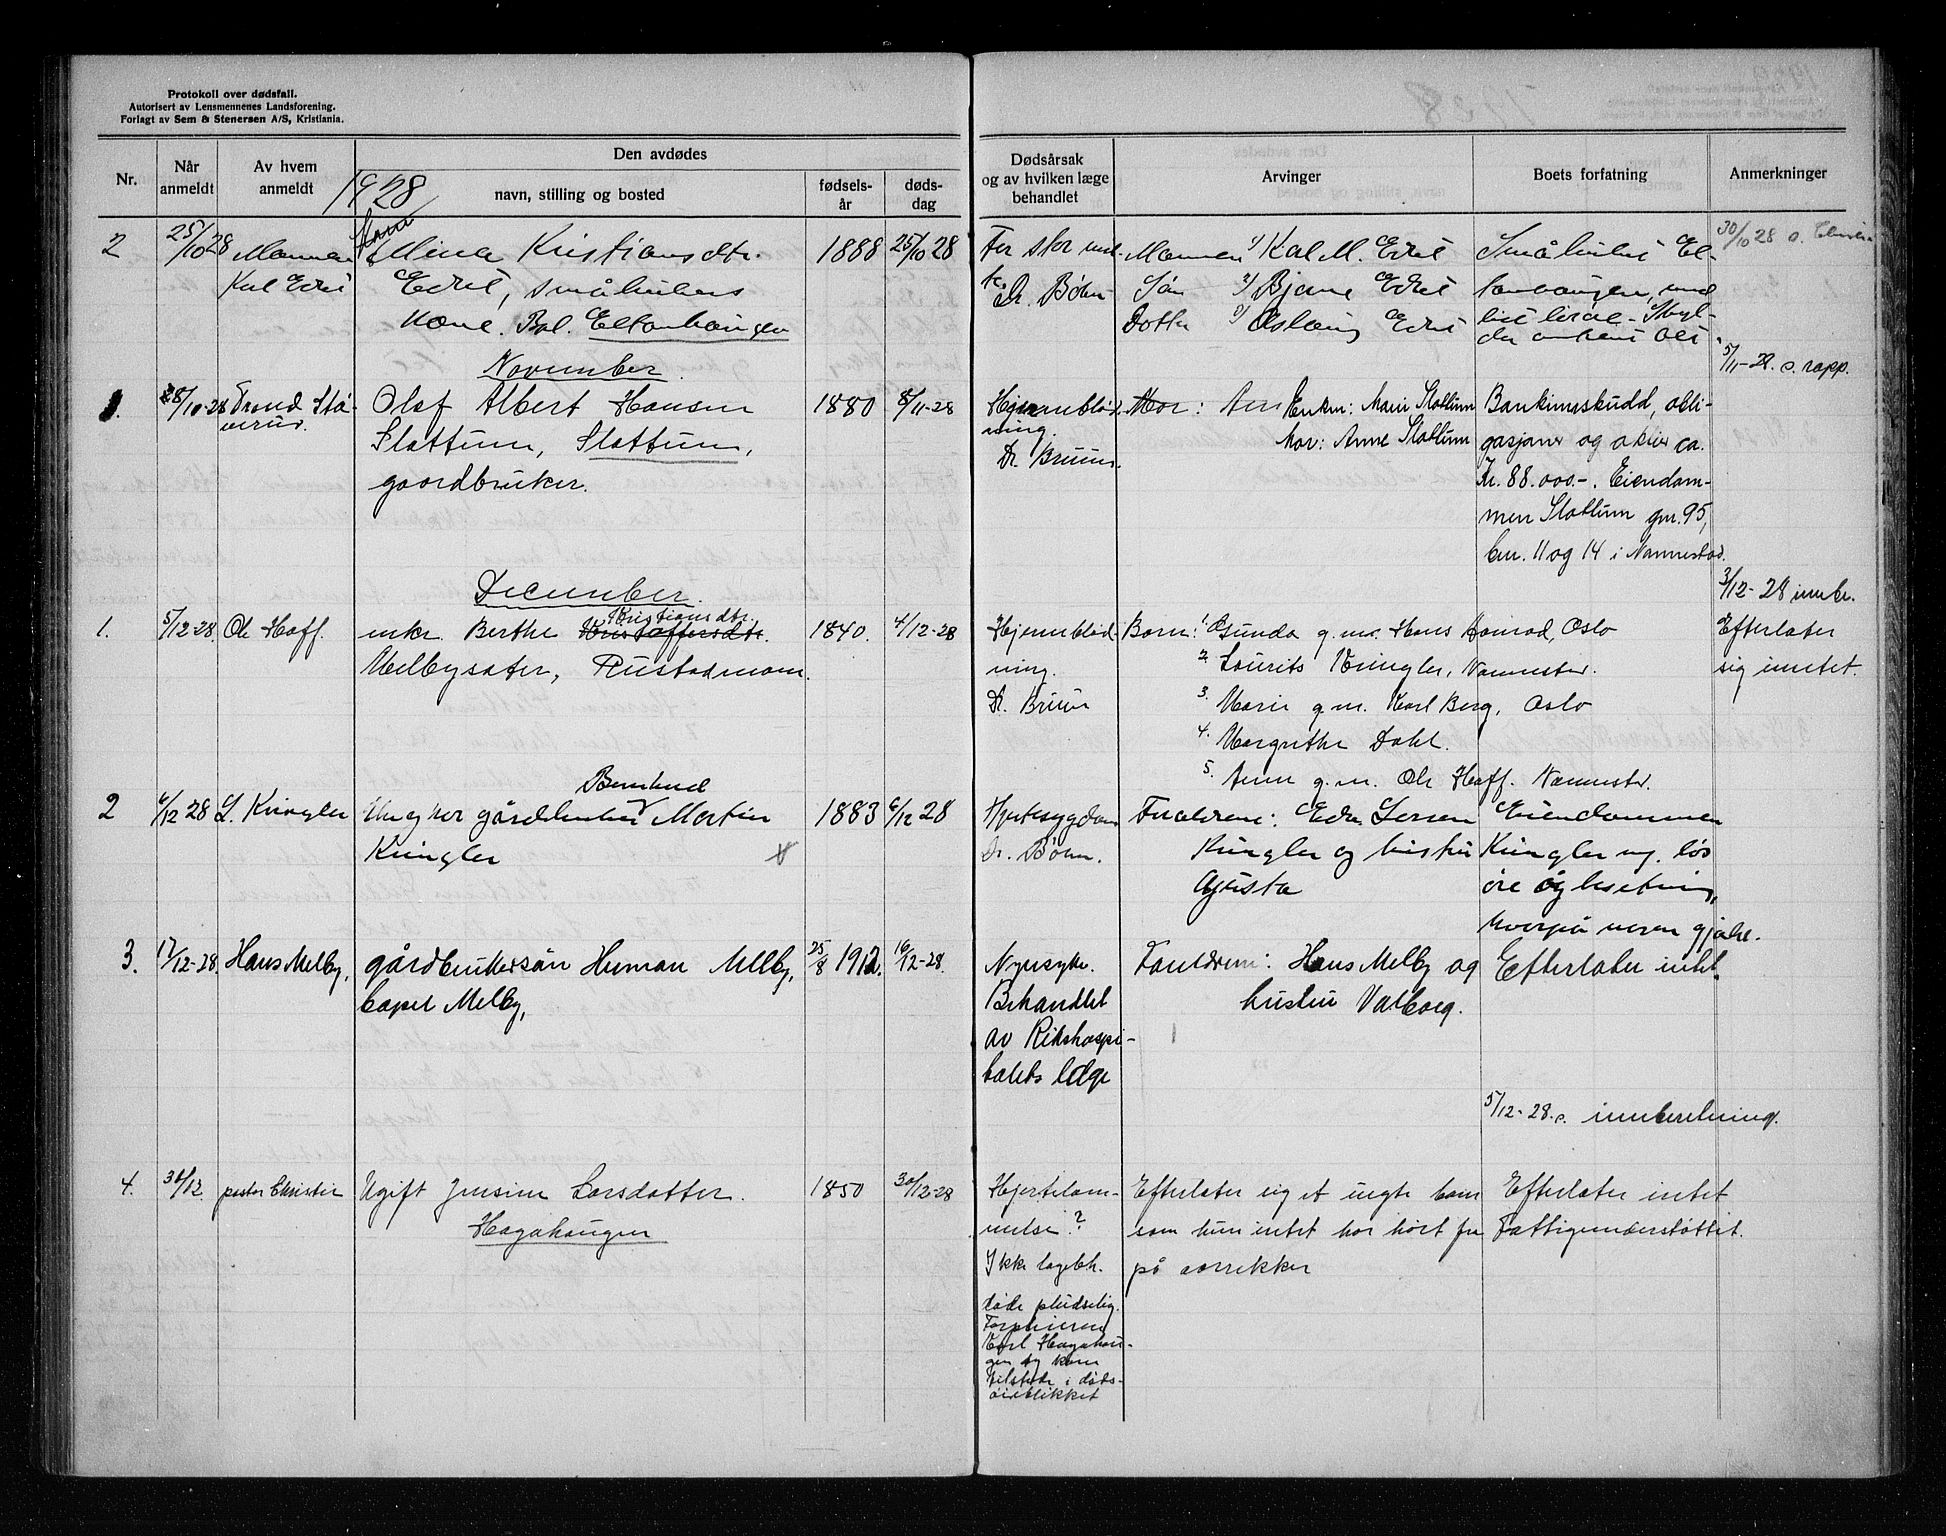 Protokoll over dødsfall.
Autorisert av Lensmennenes Landsforening.
Forlagt av Sem & Stenersen A/S, Kristiania.
Nr.
Når anmeldt
Av hvem anmeldt
Den avdødes
navn, stilling og bosted
fødsels-år
døds-dag
Dødsårsak og av hvilken læge behandlet
Arvinger
Boets forfatning
Anmerkninger
1928
2
25/10 28
Mannen
Karl
Kristiansdtr.
1888
25/10 28
Dr. Bøhn
Mannen 1/ Karl M.
Søn 2/ Bjarne
Dotter 3/ Aslaug
30/10 28
November
1.
28/10-28
Trond
Olaf Albert Hansen
Slattum, Slattum,
gaardbruker.
1880
8/11-28
Hjerneblød-
ning.
Dr. Bruun.
Mor:
Enken: Marie Slattum
Mor: Anne Slattum
Bankinnskudd, obli-
gasjoner og aksier ca.
Kr. 88.000.-. Eiendom-
men Slattum gnr. 95,
bnr. 11 og 14 i Nannestad.
5/11-28. s. rapp.
December.
1.
5/12-28.
Ole Hoff.
enke Berthe Kristoffersdtr.
Kristiansdtr.
Melbysæter, Rustadmoen.
1840.
4/12-28
Hjerneblød-
ning.
Dr. Bruun
Barn: 1. Gunda g.m. Hans Homrod, Oslo
2. Laurits Kringler, Nannestad.
3. Marie g.m. Karl Berg, Oslo
4. Margrethe Dahl.
5. Anna g.m. Ole Hoff. Nannestad.
3/12-28 innbr.
Efterlater
sig intet.
2
6/12 28
L. Kringler
Ungkar gårdbruker Martin
Kringler
1883
6/12 28
Hjertesygdom
Dr. Bøhn.
Forældrene:
Kringler og hustru
Agusta
Eiendommen
Kringler m. løs
øre og besetning,
hvorpå noren gjæld.
3.
17/12-28.
Hans Melby,
gårdbrukersøn Herman Melby,
bopel Melby,
25/8 1912.
16/12-28.
Nyresyke.
Behandlet
av Rikshospi-
talets læge
Foreldrene: Hans Melby og
hustru Valborg.
Efterlater intet.
5/12-28. s. innberetning.
4.
30/12.
pastor Christie
Ugift Jensine Larsdatter.
Hagahaugen
1850
30/12-28
Hjertelam-
melse?
Ikke lægebh.
døde pludselig.
Karl Hagahau-
gen og kone
tilstede i døds-
øieblikket
Efterlater sig et uegte barn
som hun intet har hørt fra
på årrekker
Efterlater intet
Fattigunderstøttet.